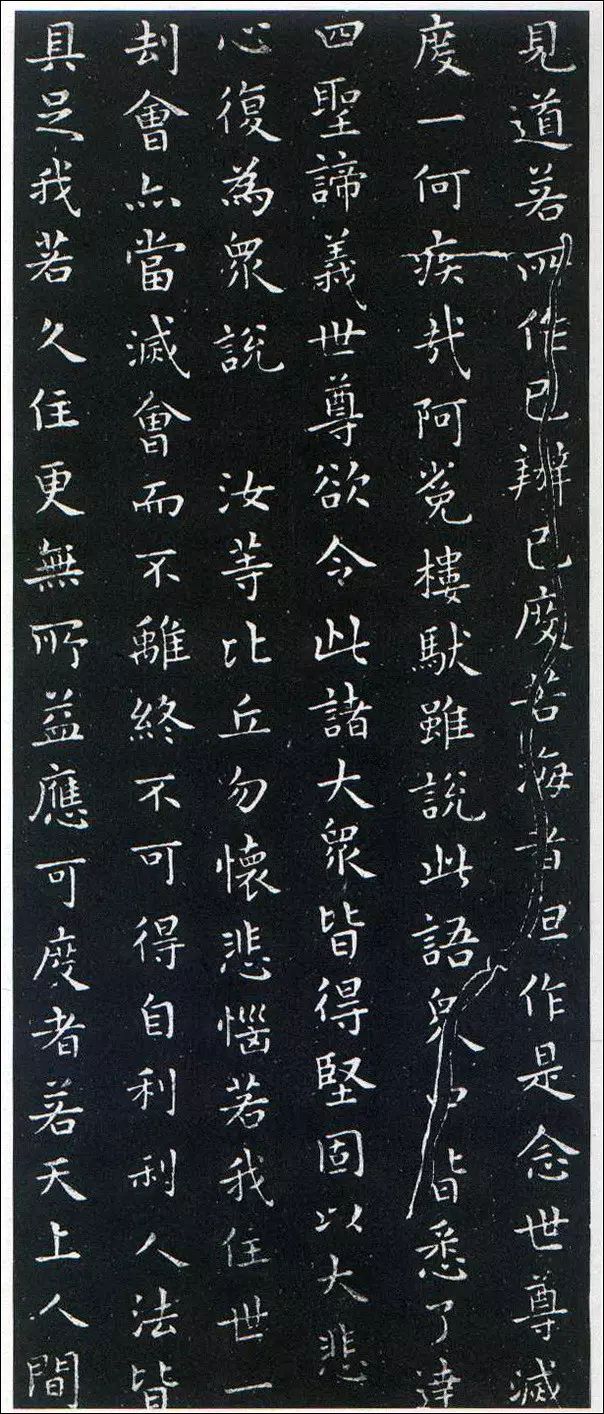 見道若所作已辦已度苦海者但作是念世尊滅
度一何疾哉阿㝹樓馱雖說此語衆中皆悉了達
四聖諦義世尊欲令此諸大衆皆得堅固以大悲
心復為衆說　汝等比丘勿懷悲惱若我住世一
刦會亦當滅會而不離終不可得自利利人法皆
具足我若久住更無所益應可度者若天上人間